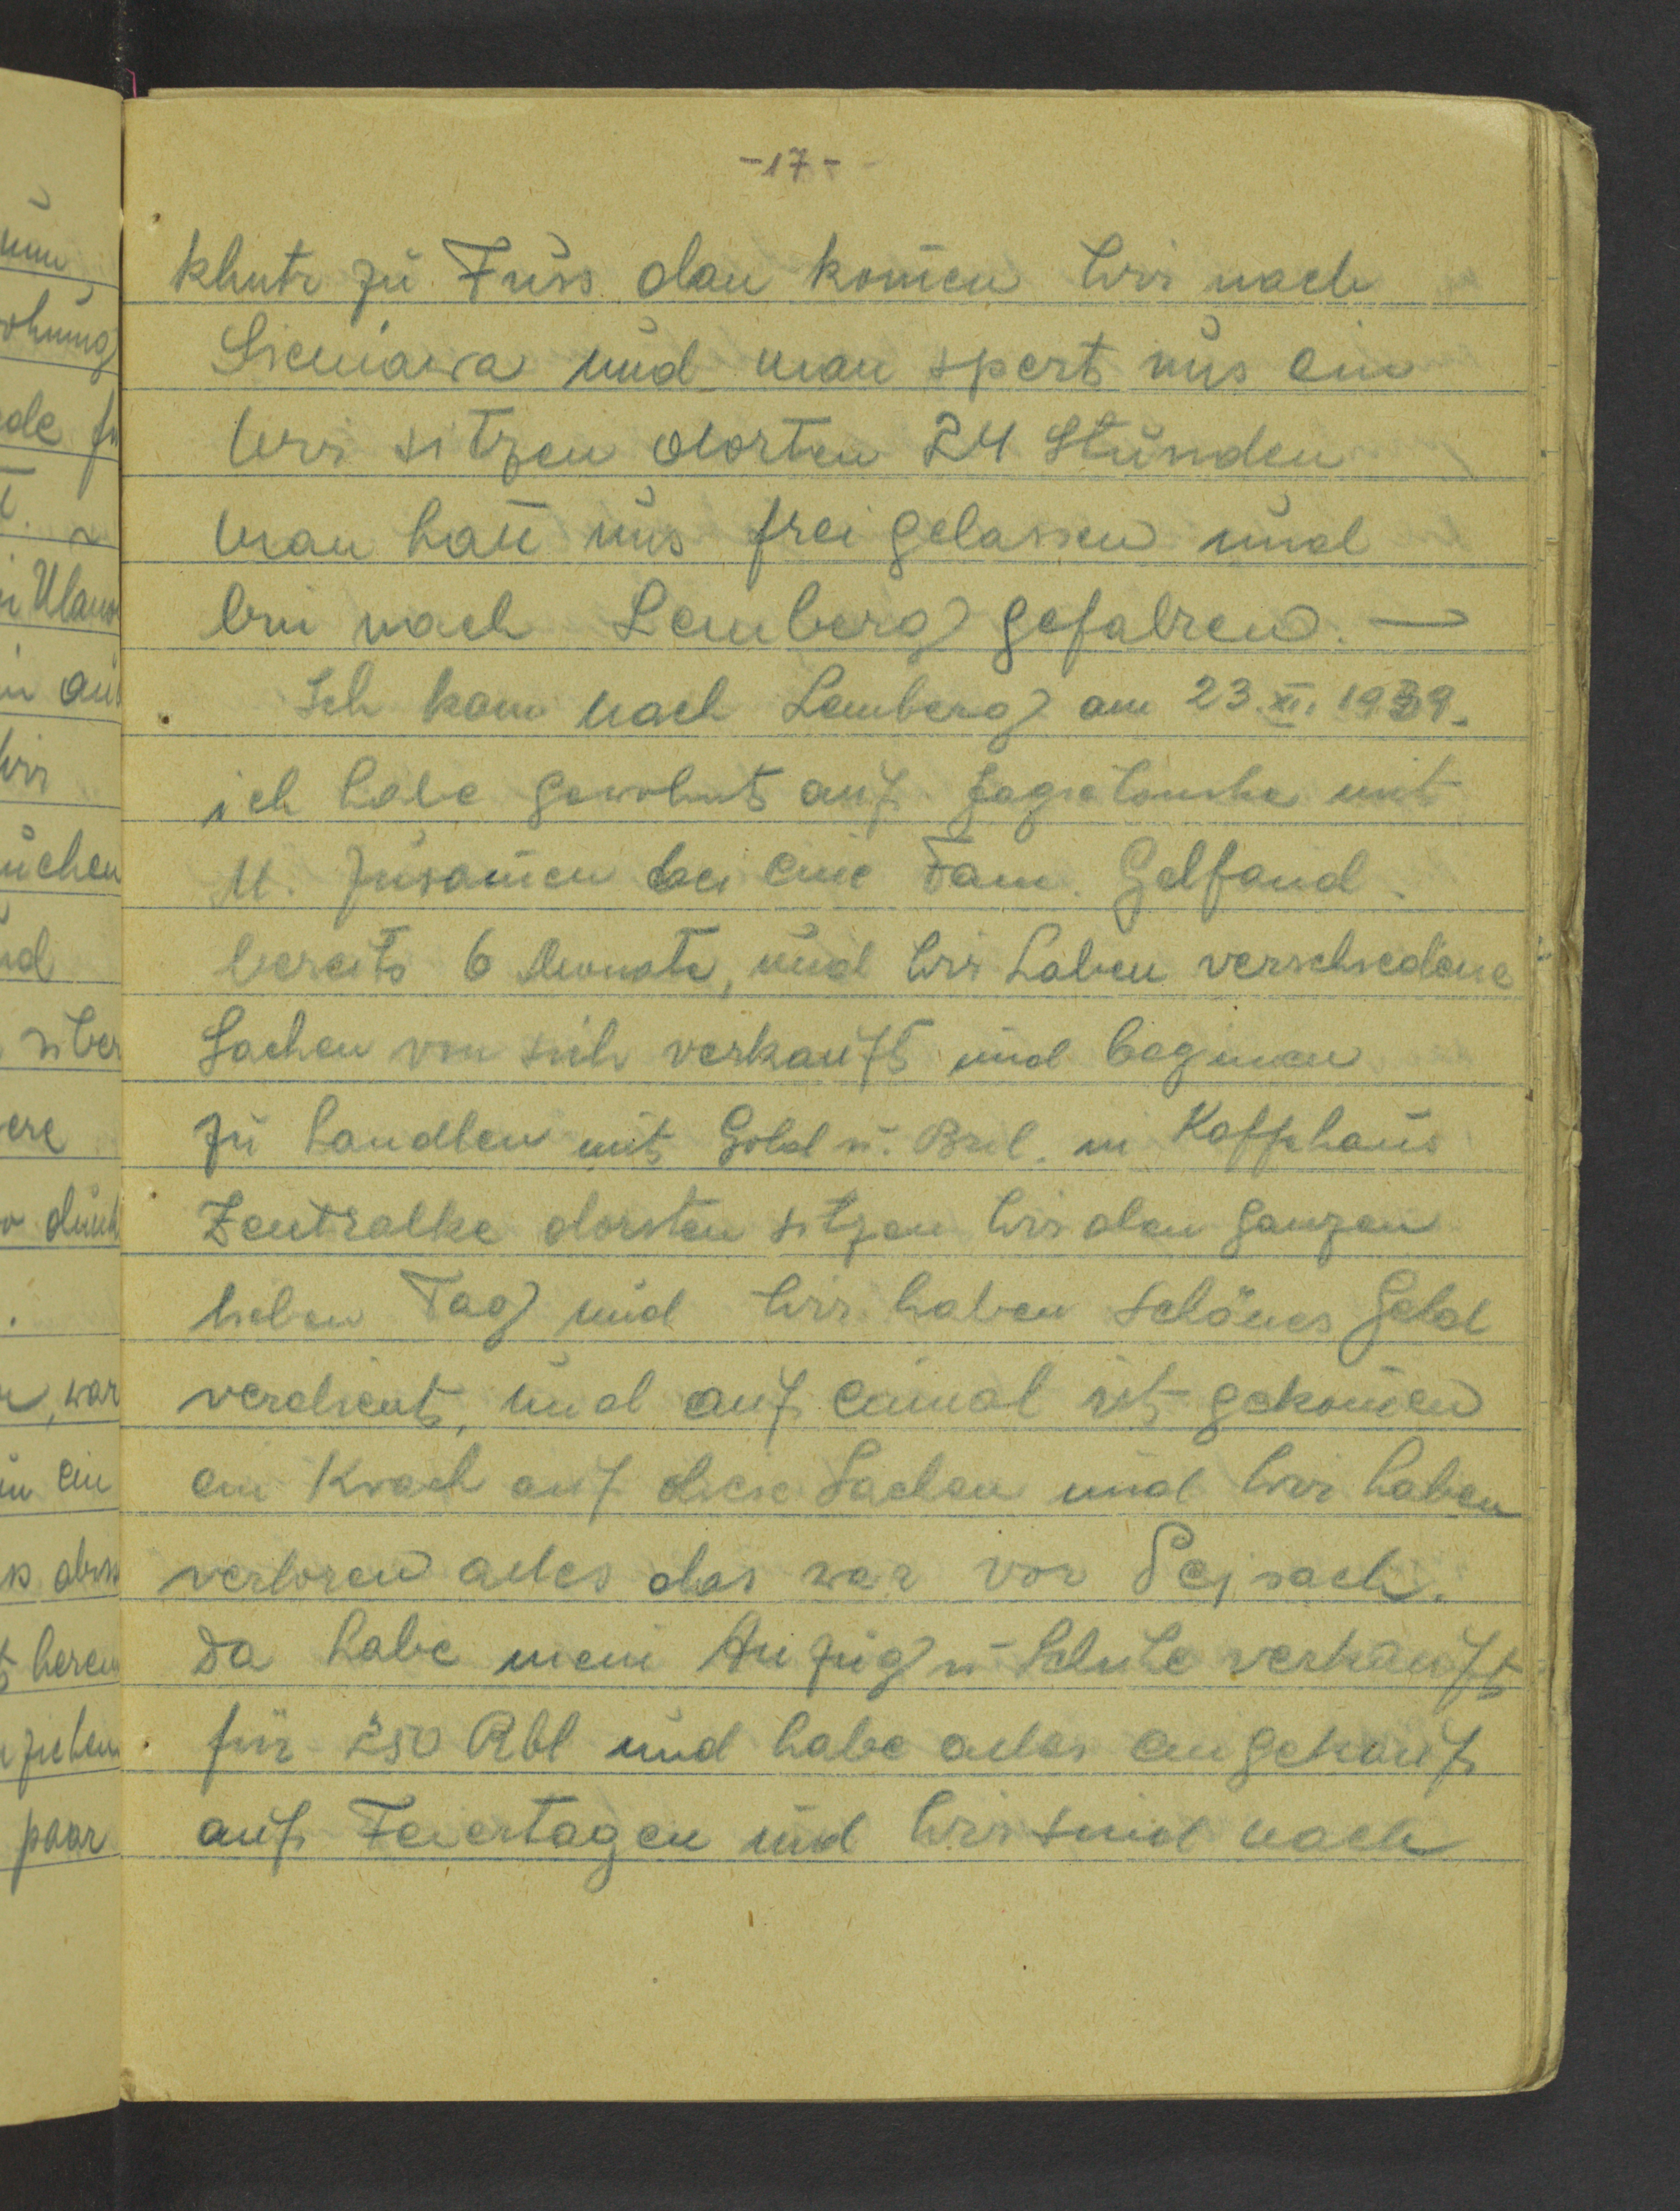 -17-
klmtr zu Fuss dan komen wir nach
Sieniawa und man spert uns ein
wir sitzen dorten 24 Stunden
man hatt uns frei gelassen und
bin nach Lemberg gefahren. —
Ich kam nach Lemberg am 23.XI.1939.
ich habe gewohnt auf mit
M. zusamen bei eine Fam. Gelfand.
bereits 6 Monate, und wir haben verschiedene
Sachen von sich verkauft und beginnen
zu handlen mit Gold u. Bril. in Kaffehaus
Zentralke dorten sitzen wir den ganzen
lieben Tag und wir haben schönes Geld
verdient, und auf einmal ist gekomen
ein Krach auf diese Sachen und wir haben
verloren alles das war vor Pejsach.
da habe mein Anzug u Schuhe verkauft
für 250 Rbl und habe alles eingekauft
auf Feiertagen und wir sind nach
num
ohnung
ede
Ulanow
wir
uchen
nd
über
ere
durch
war
in ein
heren
ziehen
paar